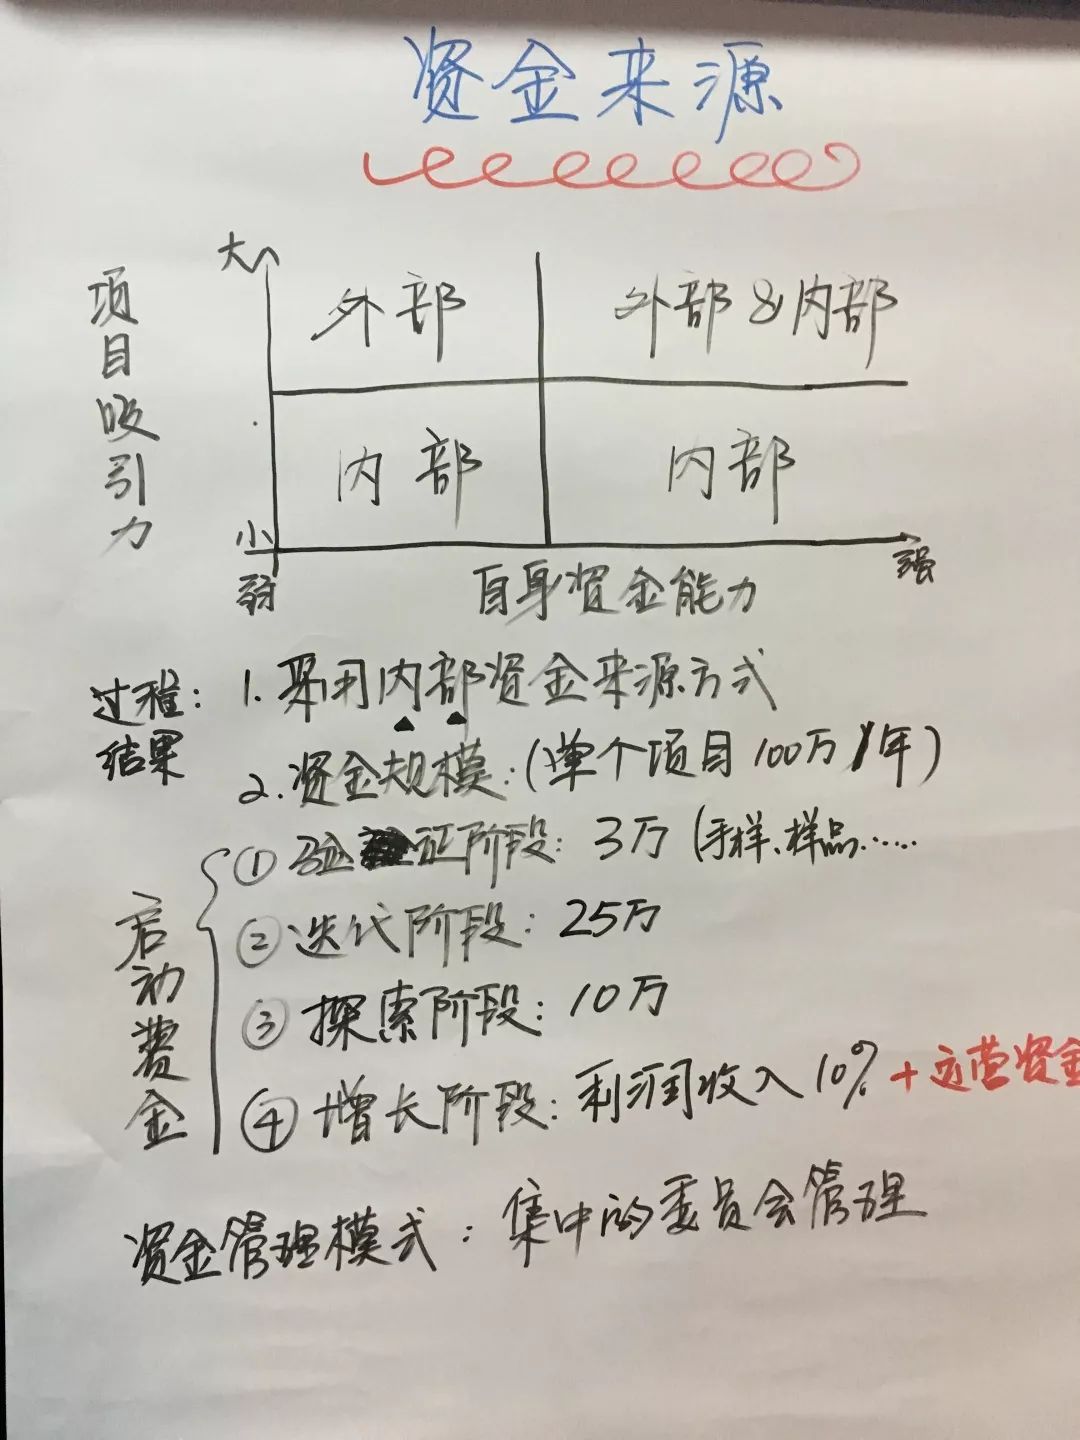 资金来源
大
外部
外部&内部
项目吸引力
内部
内部
小
弱
自身资金能力
强
过程：
结果
1. 采用内部资金来源方式
2. 资金规模：（单个项目100万/年）
启动费金
① 验证阶段：3万（手样、样品……
② 迭代阶段：25万
③ 探索阶段：10万
④ 增长阶段：利润收入10%+运营资金
资金管理模式：集中的委员会管理